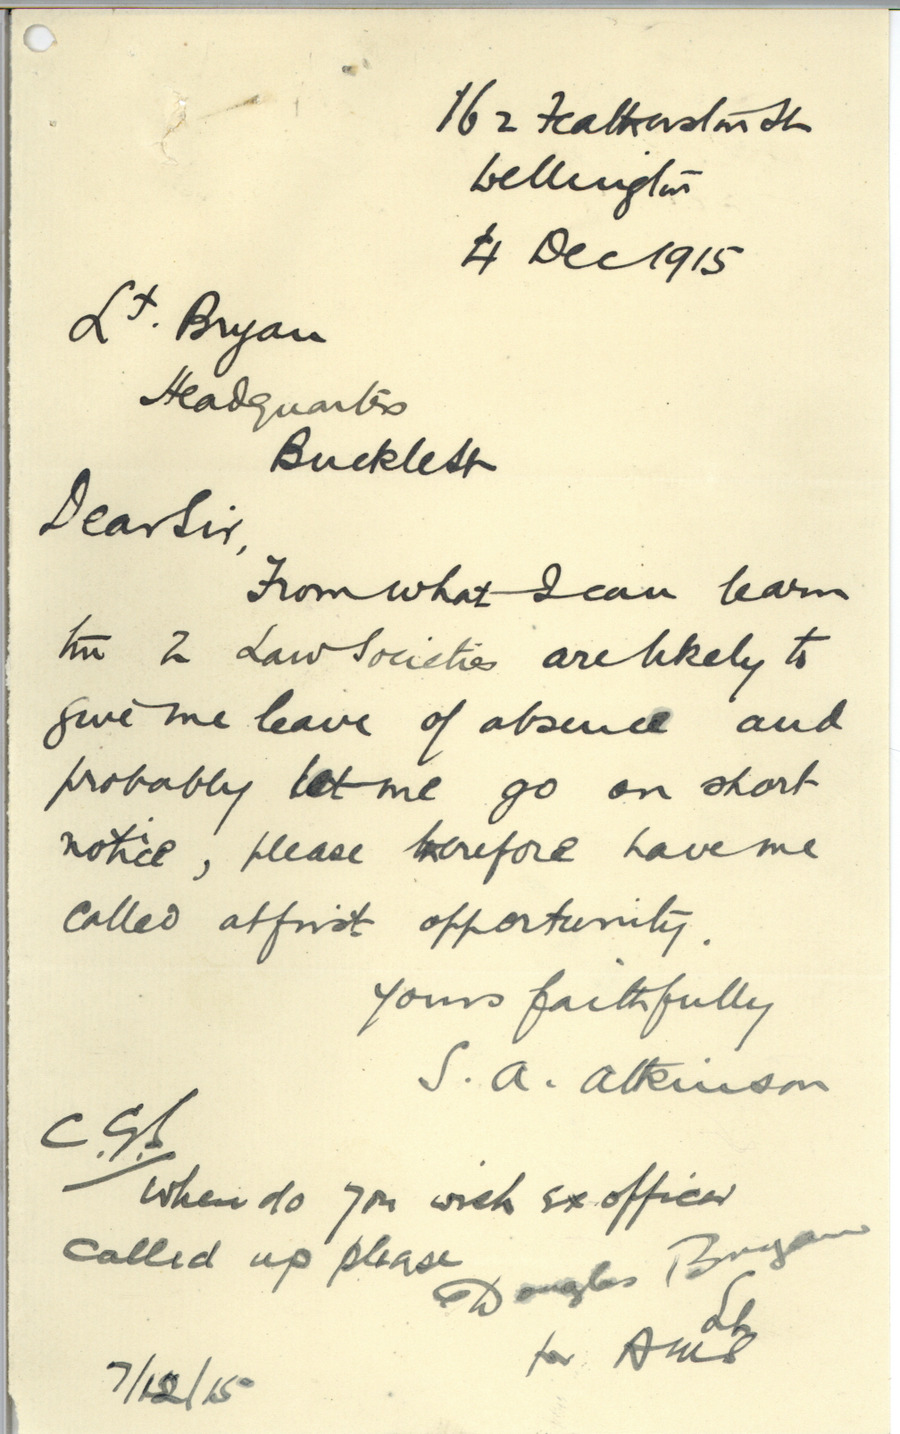 162 Featherston St
Wellington
4 Dec 1915
Lt. Bryan
Headquarters
Buckle St
Dear Sir,
From what I can learn
the 2 Law Societies are likely to
give me leave of absence and
probably let me go on short
notice, please therefore have me
called at first opportunity.
Yours faithfully
S. A. Atkinson
C.G.S
When do you wish ex officer
called up please
Douglas Bryan
Lt
for AMS
7/12/15